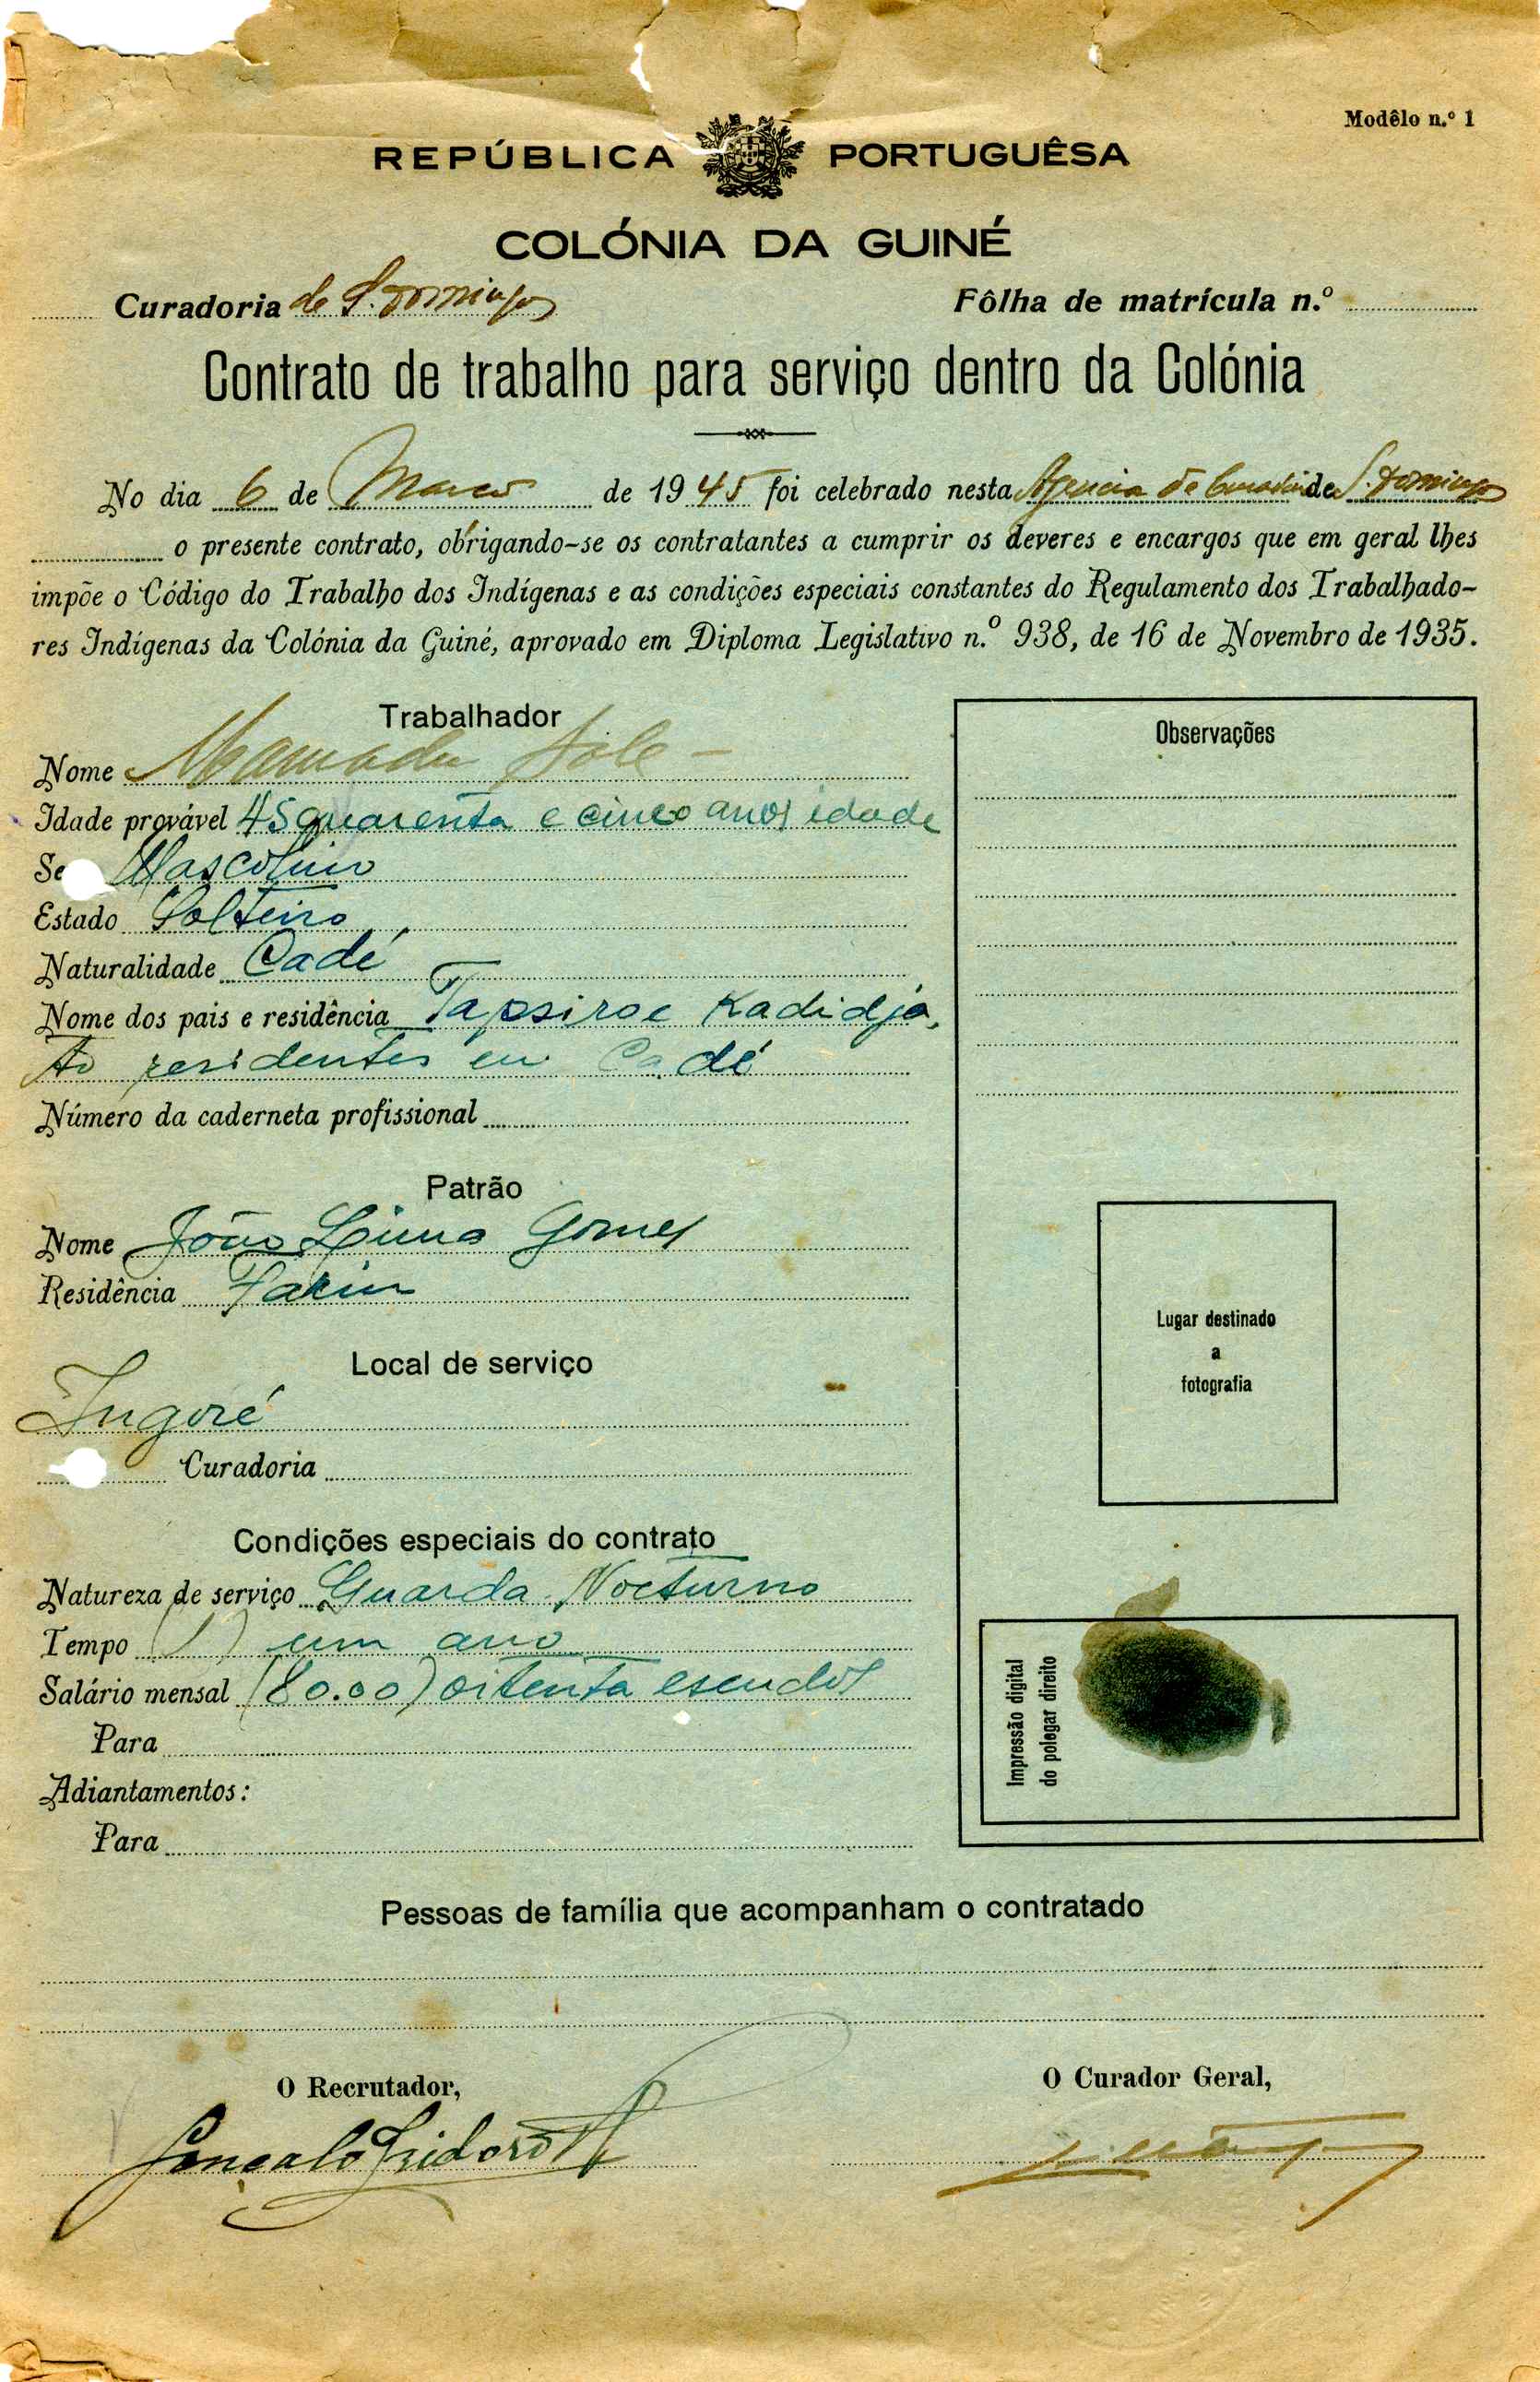 Modêlo n.º 1
REPÚBLICA PORTUGUÊSA
COLÓNIA DA GUINÉ
Curadoria de S. Domingos Fôlha de matrícula n.º
Contrato de trabalho para serviço dentro da Colónia
No dia 6 de Março de 1945 foi celebrado nesta Agencia da Curadoria de S. Domingos
o presente contrato, obrigando-se os contratantes a cumprir os deveres e encargos que em geral lhes
impõe o Código do Trabalho dos Indígenas e as condições especiais constantes do Regulamento dos Trabalhado-
res Indígenas da Colónia da Guiné, aprovado em Diploma Legislativo n.º 938, de 16 de Novembro de 1935.
Trabalhador
Nome Mamadu
Idade provável 45 quarenta e cinco anos idade
Se Mascolino
Estado Solteiro
Naturalidade Cadé
Nome dos pais e residência Tapsiroe Kadidja,
residentes em Cadé
Número da caderneta profissional
Patrão
Nome João Gomes
Residência Farim
Local de serviço
Ingoré
Curadoria
Condições especiais do contrato
Natureza de serviço Guarda Nocturno
Tempo (1) um ano
Salário mensal (80.00) oitenta escudos
Para
Adiantamentos:
Para
Observações
Lugar destinado
a
fotografia
Impressão digital
do polegar direito
Pessoas de família que acompanham o contratado
O Recrutador,
Gonçalo Izidoro
O Curador Geral,